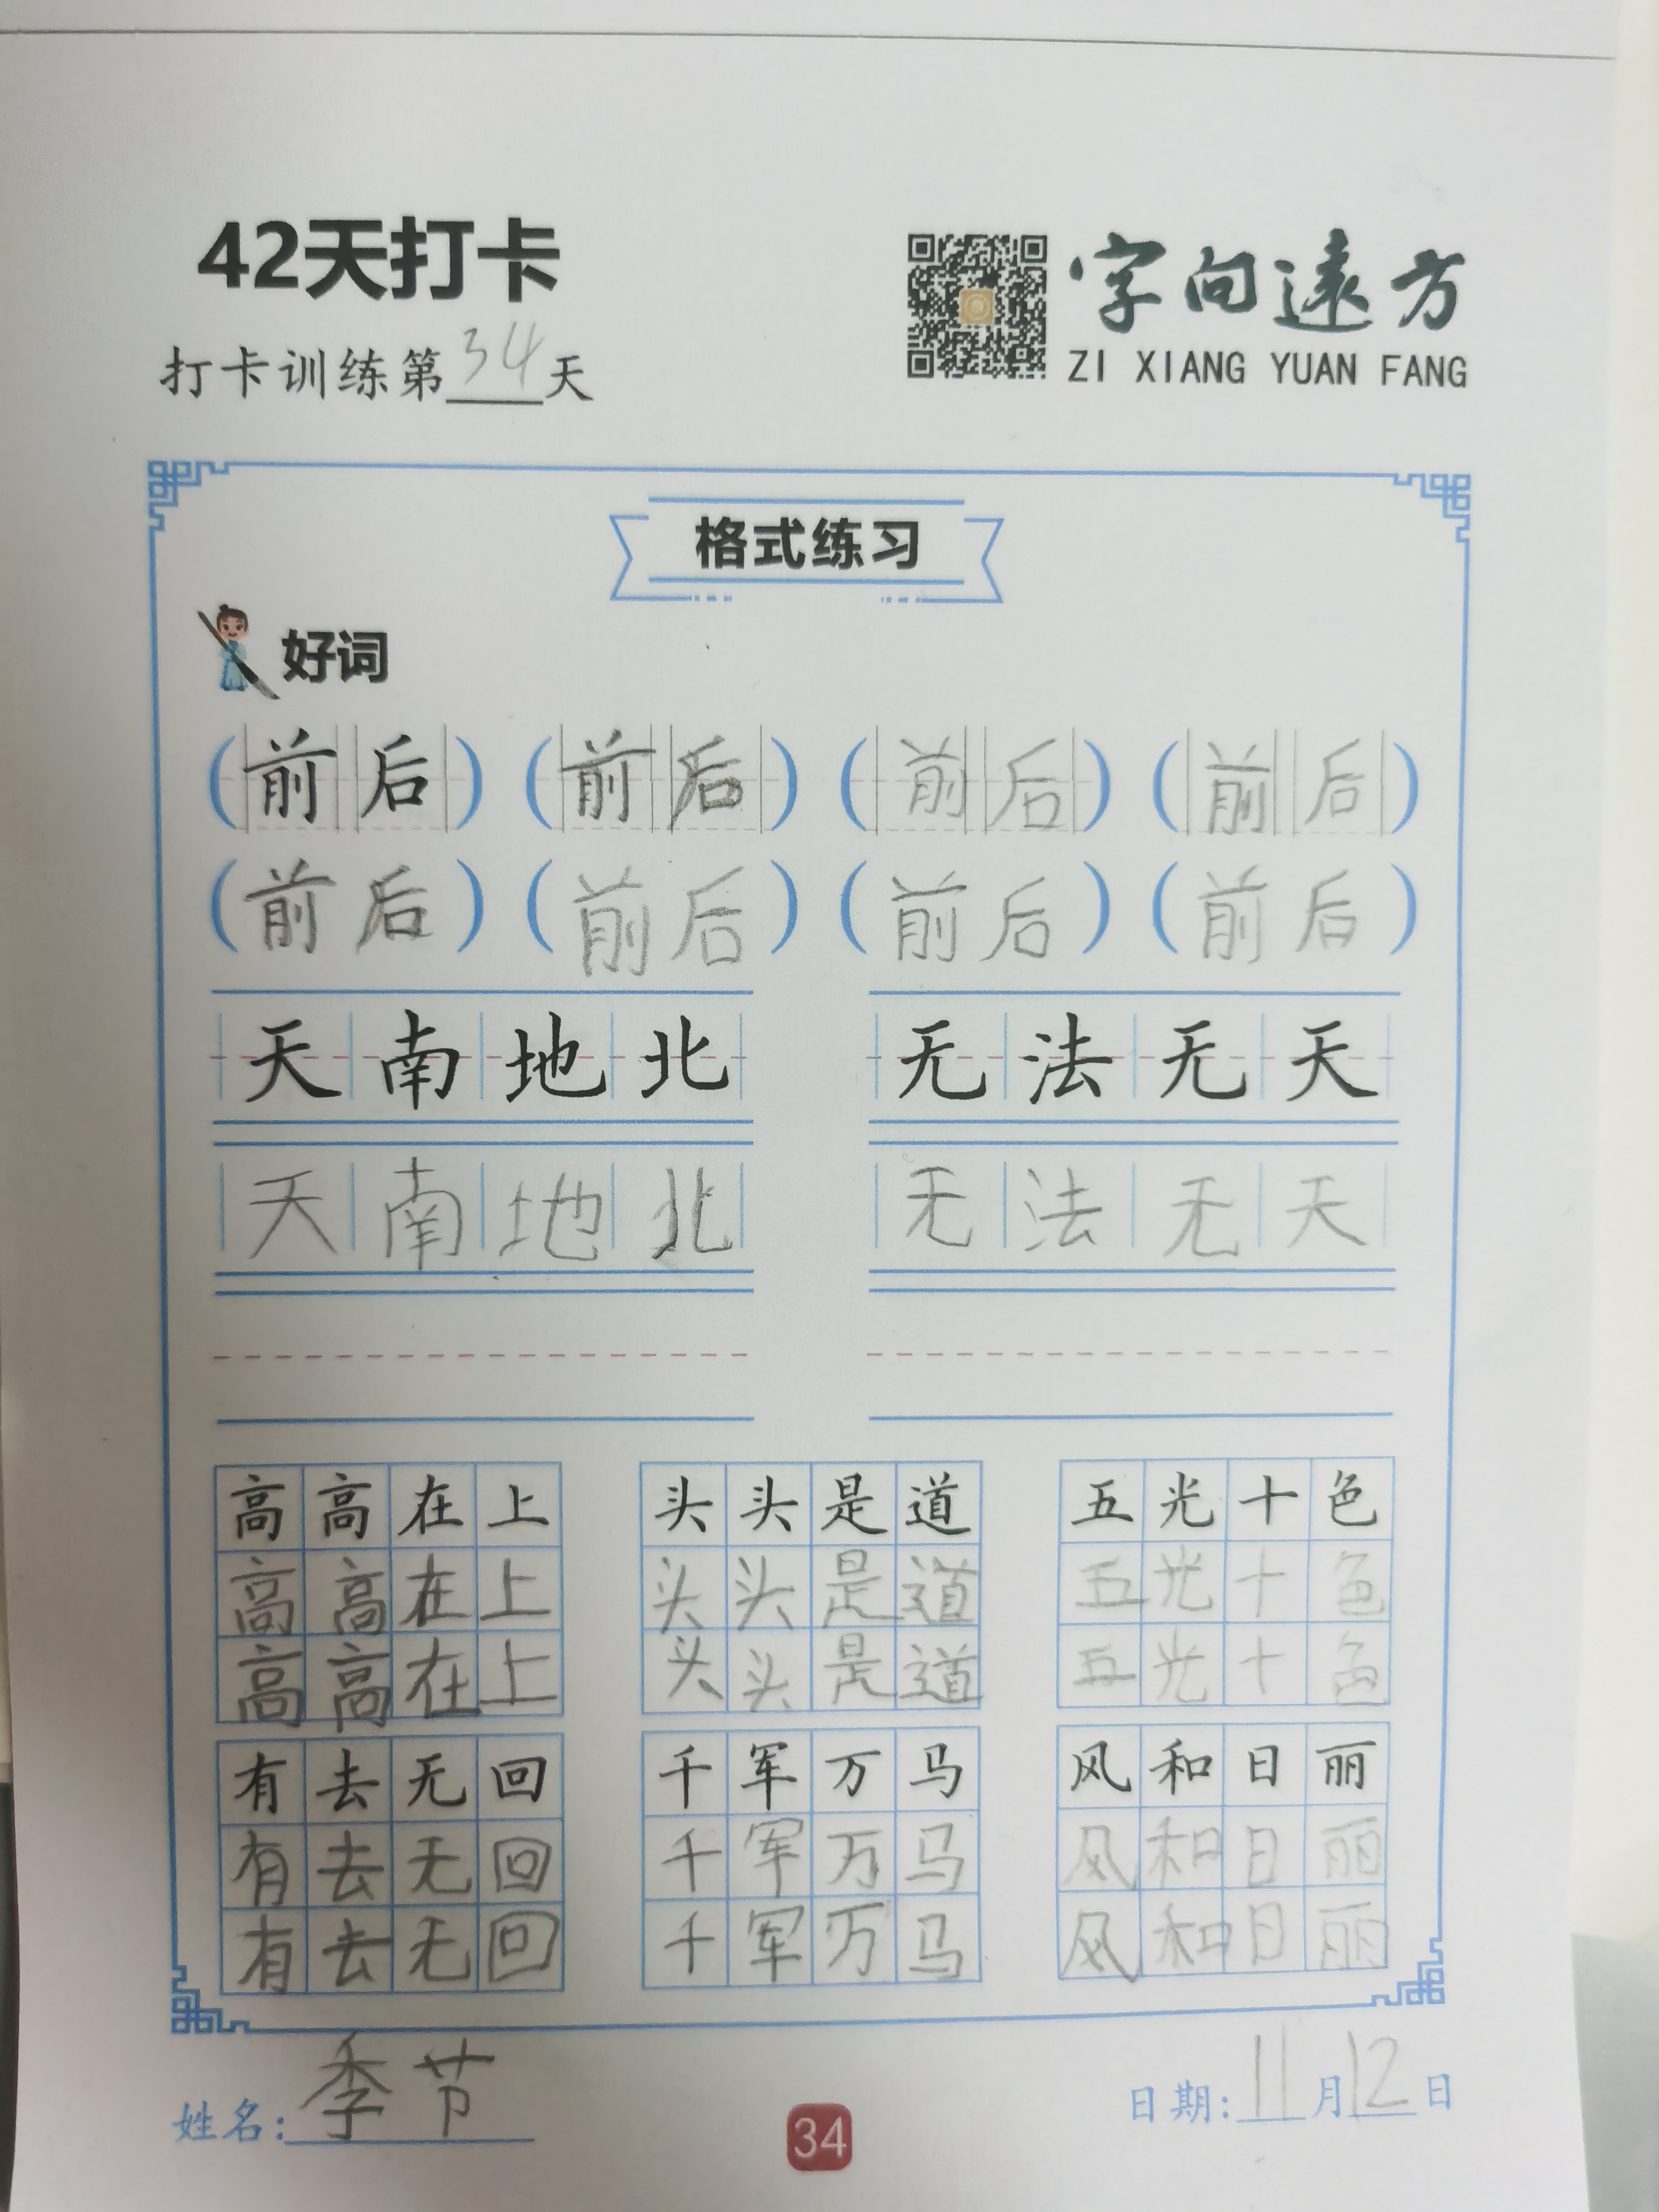 42天打卡
字向遠方
ZI XIANG YUAN FANG
打卡训练第34天
格式练习
好词
(前后) (前后) (前后) (前后)
(前后) (前后) (前后) (前后)
天南地北 无法无天
天南地北 无法无天
高高在上 头头是道 五光十色
高高在上 头头是道 五光十色
高高在上 头头是道 五光十色
有去无回 千军万马 风和日丽
有去无回 千军万马 风和日丽
有去无回 千军万马 风和日丽
姓名:季节
日期:11月12日
34